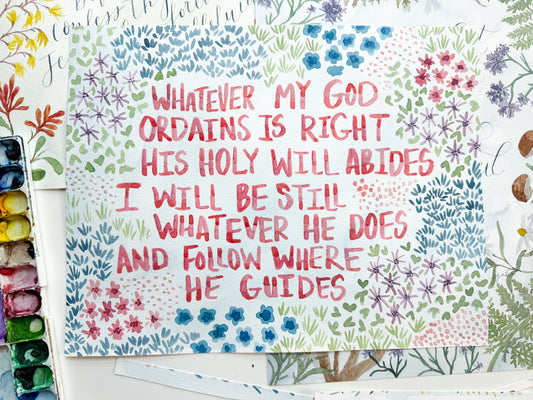 WHATEVER MY GOD
ORDAINS IS RIGHT
HIS HOLY WILL ABIDES
I WILL BE STILL
WHATEVER HE DOES
AND FOLLOW WHERE
HE GUIDES